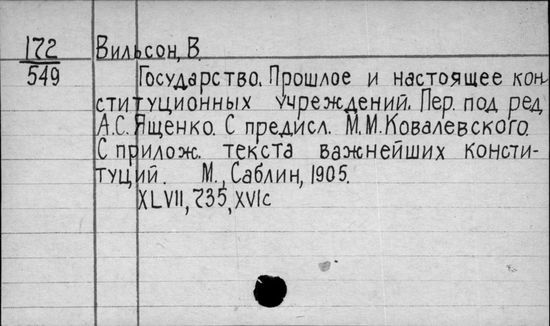 172
549
Вильсон, В.
Государство. Прошлое и настоящее кон-
ституционных учреждений. Пер. под ред.
А.С. Ященко. С предисл. М.М. Ковалевского.
С прилож. текста важнейших консти-
туций. М., Саблин, 1905.
XLVII, 735, XVIс